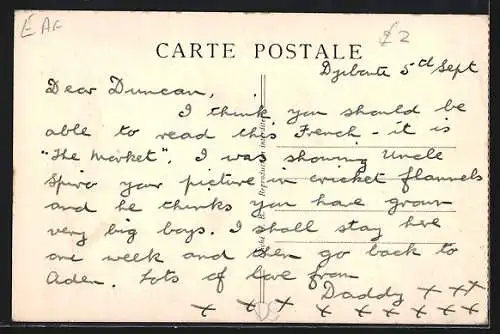 EAF
£2
CARTE POSTALE
Djibouti 5th Sept
Dear Duncan,
I think you should be
able to read this French - it is
"The Market". I was showing Uncle
Spiro your picture in cricket flannels
and he thinks you have grown
very big boys. I shall stay here
one week and then go back to
Aden. Lots of love from
Daddy x x x
x x x x x x x x x
Reproduction interdite